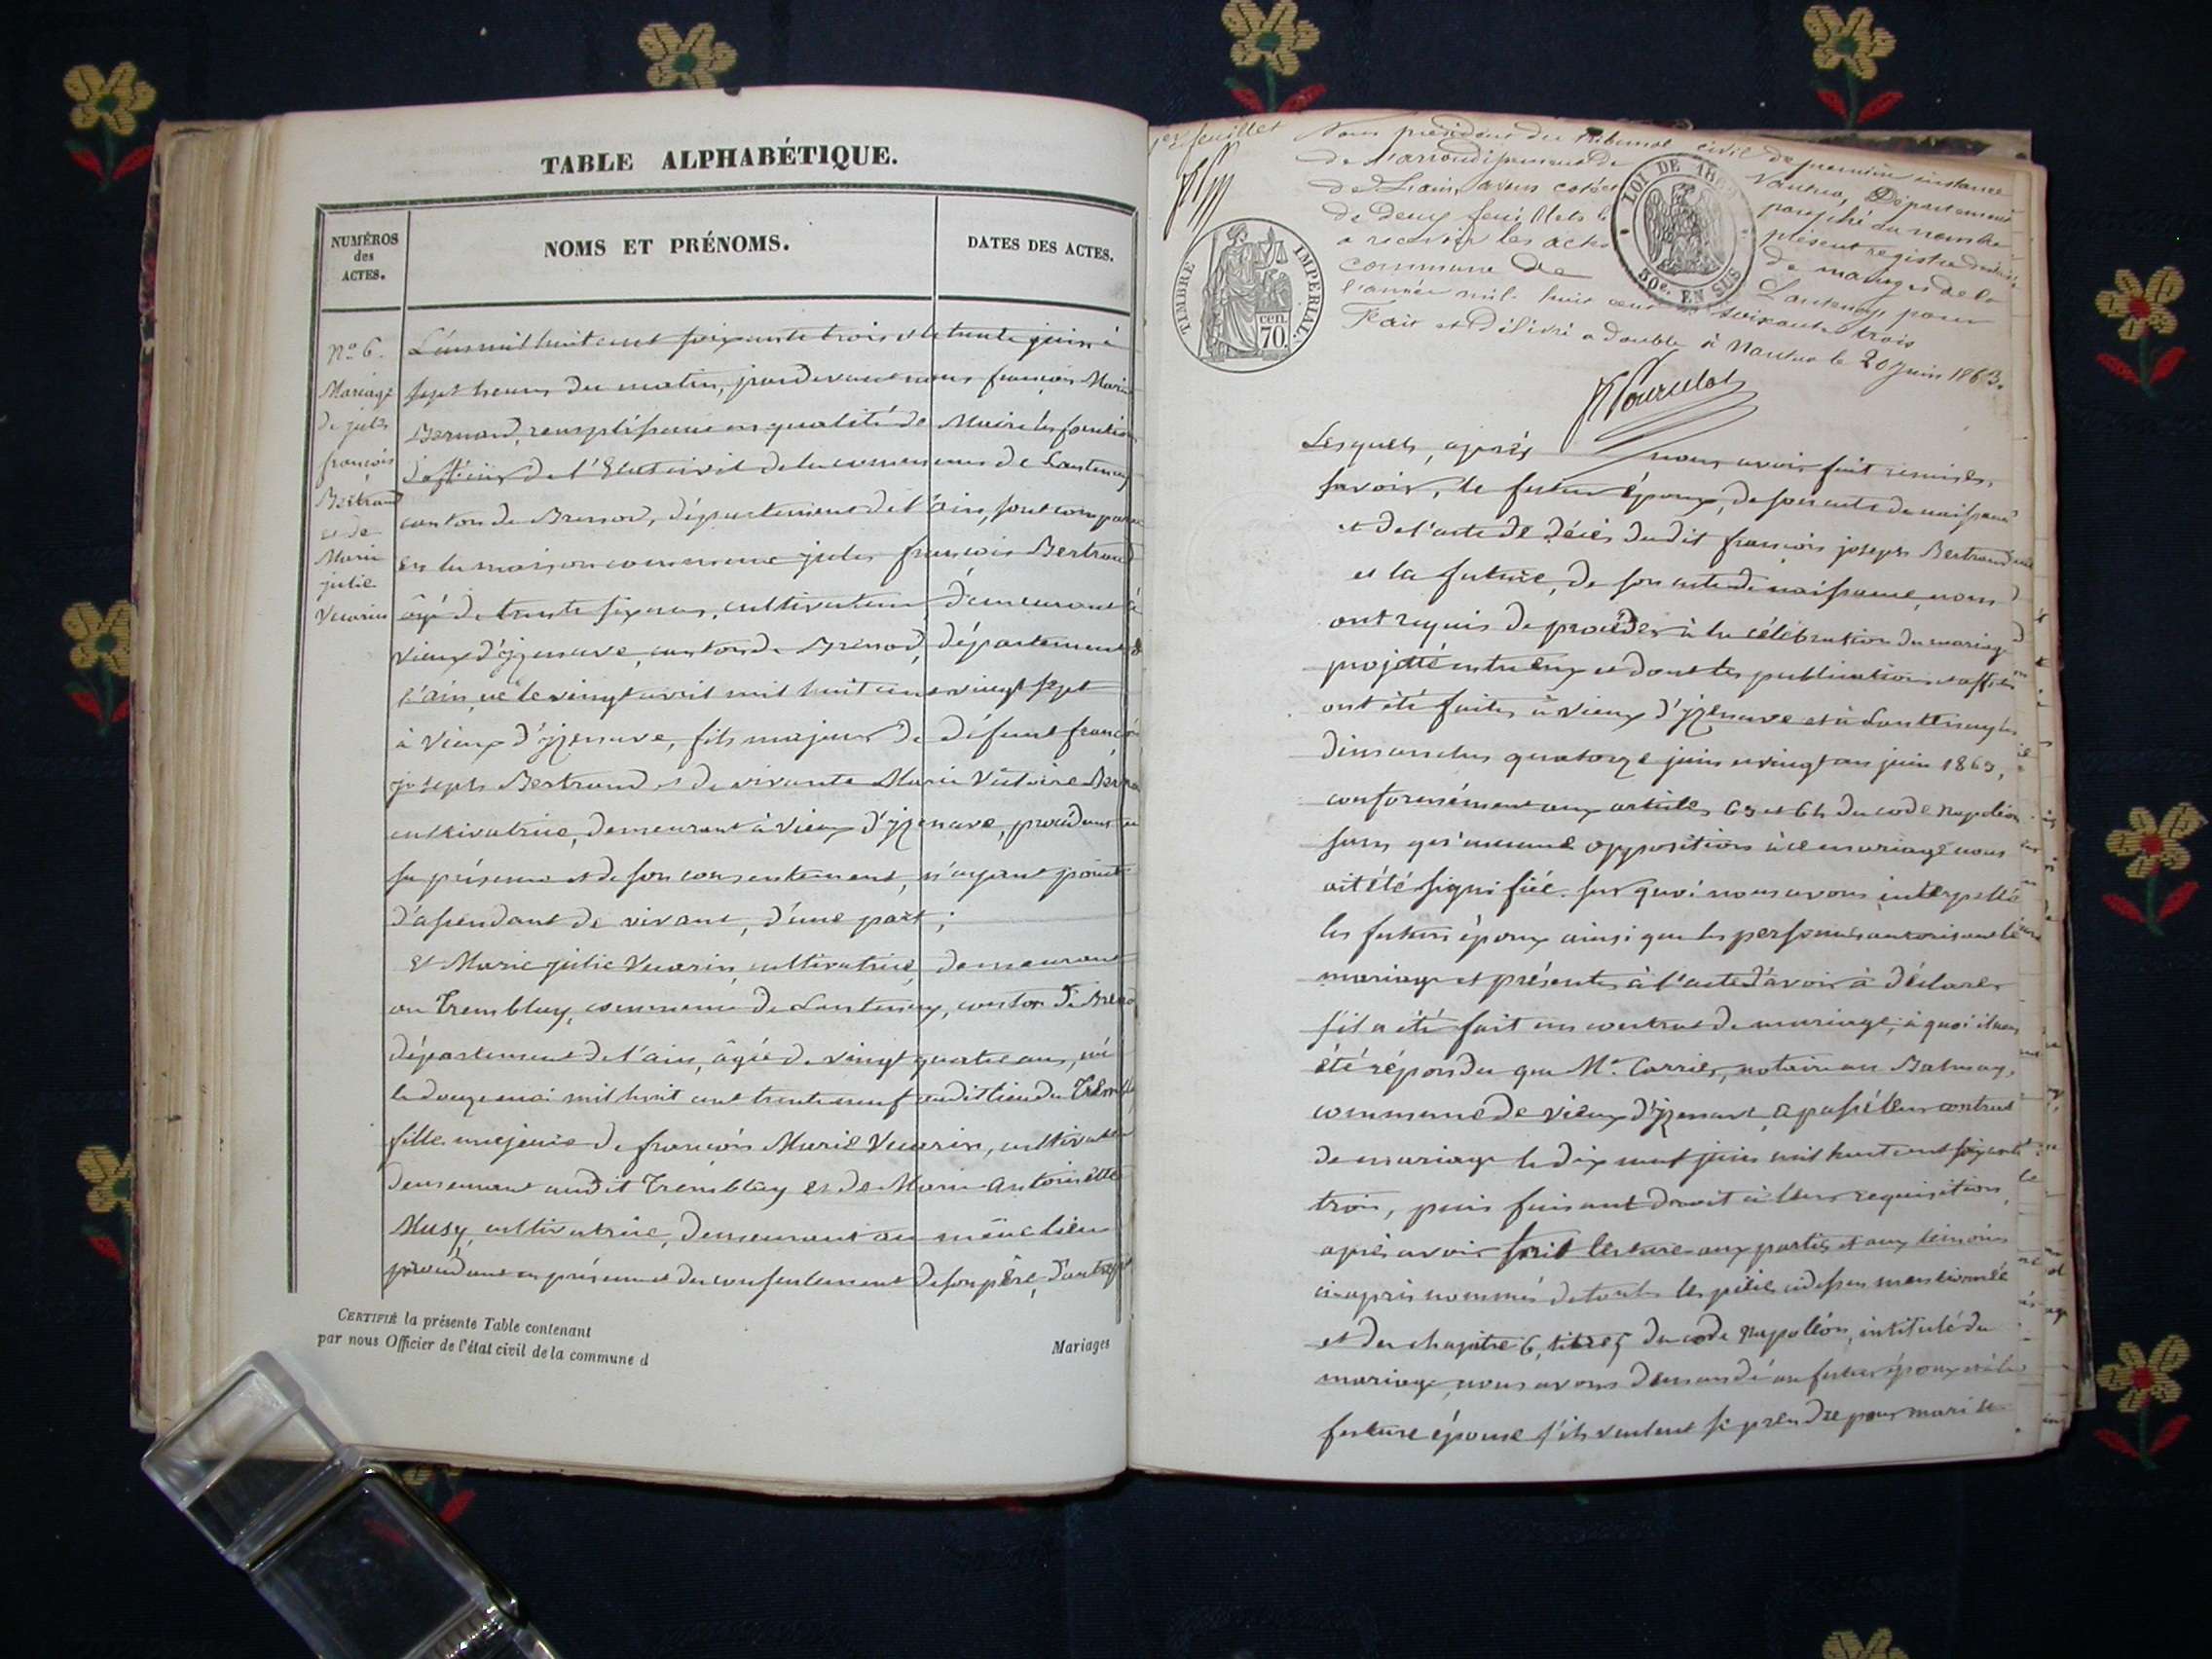 TABLE ALPHABÉTIQUE.
NUMÉROS
des
ACTES.
NOMS ET PRÉNOMS.
DATES DES ACTES.
N° 6.
Mariage
de jules
françois
Bertrand
et de
Marie
julie
Vuarin
L'an mil huit cent soixante trois et le trente juin à
sept heures du matin, pardevant nous françois Marie
Bernard, remplissant en qualité de Maire les fonctions
d'officier de l'Etat civil de la commune de Lantenay
canton de Brenod, département de l'ain, sont comparus
en la maison commune jules françois Bertrand
âgé de trente six ans, cultivateur demeurant à
vieux d'izenave, canton de Brenod, département de
l'ain, né le vingt avril mil huit cent vingt sept
à Vieux d'izenave, fils majeur de défunt françois
joseph Bertrand et de vivante Marie Victoire
cultivatrice, demeurant à Vieux d'izenave, procédant en
sa présence et de son consentement, n'ayant point
d'assendant de vivant, d'une part ;
Et Marie julie Vuarin, cultivatrice, demeurant
au Tremblay, commune de Lantenay, canton de Brenod
département de l'ain, âgée de vingt quatre ans, née
le douze mai mil huit cent trente neuf audit lieu du Trembl
fille majeure de françois Marie Vuarin, cultivateur
demeurant audit Tremblay et de Marie Antoinette
Musy, cultivatrice, demeurant au même lieu
procédant en présence et du consentement de son père, d'autre part
CERTIFIÉ la présente Table contenant
par nous Officier de l'état civil de la commune d
Mariages
1er feuillet
Nous président du tribunal civil de première instance
de l'arrondissement de Nantua, Département
de l'ain, avons coté paraphé au nombre
de deux feuillets le présent registre destiné
a recevoir les actes de mariages de la
commune de Lantenay pour
l'année mil huit cent soixante trois
Fait et délivré a double à Nantua le 20 juin 1863.
TIMBRE IMPERIAL.
cen.
70.
LOI DE 186
50c. EN SUS
Lesquels, après nous avoir fait remises,
savoir, le futur époux, de son acte de naissance
et de l'acte de décès dudit françois joseph Bertrand
et la future, de son acte de naissance, nous
ont requis de procéder à la célébration du mariage
projeté entr'eux et dont les publications et affiches
ont été faites à vieux d'izenave et à Lantenay les
dimanches quatorze juin et vingt un juin 1863,
conformément aux articles 63 et 64 du code Napoléon
sans qu'aucune opposition à ce mariage nous
ait été signifiée. sur quoi nous avons interpellé
les futurs époux ainsi que les personnes autorisant le
mariage et présentes à l'acte d'avoir à déclarer
s'il a été fait un contrat de mariage, à quoi il nous
été répondu que Me. Carrier, notaire au Balmay,
commune de vieux d'izenave a passé leur contrat
de mariage le dix neuf juin mil huit cent soixante
trois, puis faisant droit à leur requisition,
après avoir fait lecture aux parties et aux témoins
ci après nommés de toutes les pièces cidessus mentionnées
et du chapitre 6, titre 5 du code Napoléon, intitulé du
mariage, nous avons demandé au futur époux et à la
future épouse s'ils veulent se prendre pour mari et